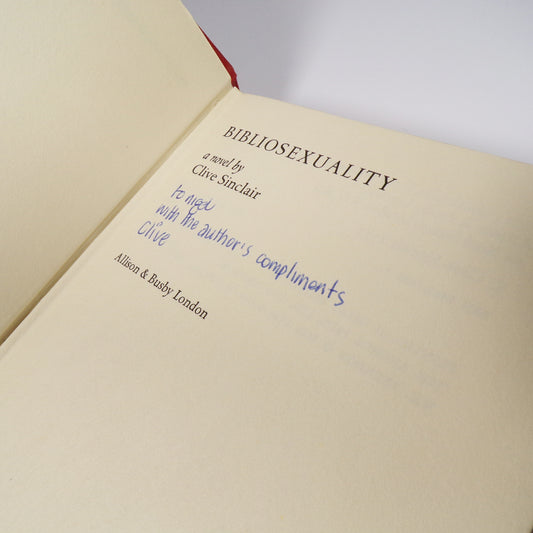 BIBLIOSEXUALITY
a novel by
Clive Sinclair
to nigel
with the author's compliments
Clive
Allison & Busby London